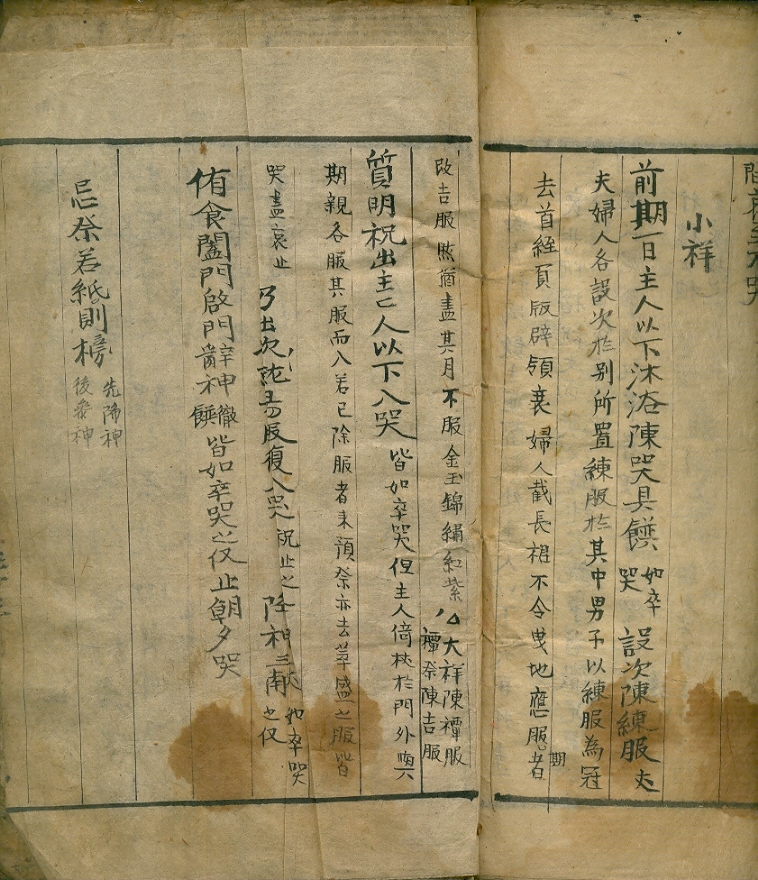 小祥
前期一日主人以下沐浴陳哭具饌 如卒哭 設次陳練服 丈
夫婦人各設次於別所置練服於其中男子以練服為冠
去首絰負版辟領衰婦人截長裙不令曳地應服期者
改吉服然猶盡其月不服金玉錦繡紅紫 大祥陳禫服 禫祭陳吉服
質明祝出主主人以下入哭 皆如卒哭但主人倚杖於門外與
期親各服其服而入若已除服者来預祭亦去華盛之服皆
哭盡哀止 乃出次就次易服復入哭 祝止之 降神三獻 如卒哭之仪
侑食闔門啟門辭神 徹饌 皆如卒哭之仪止朝夕哭
忌祭若紙則榜 先降神 後参神